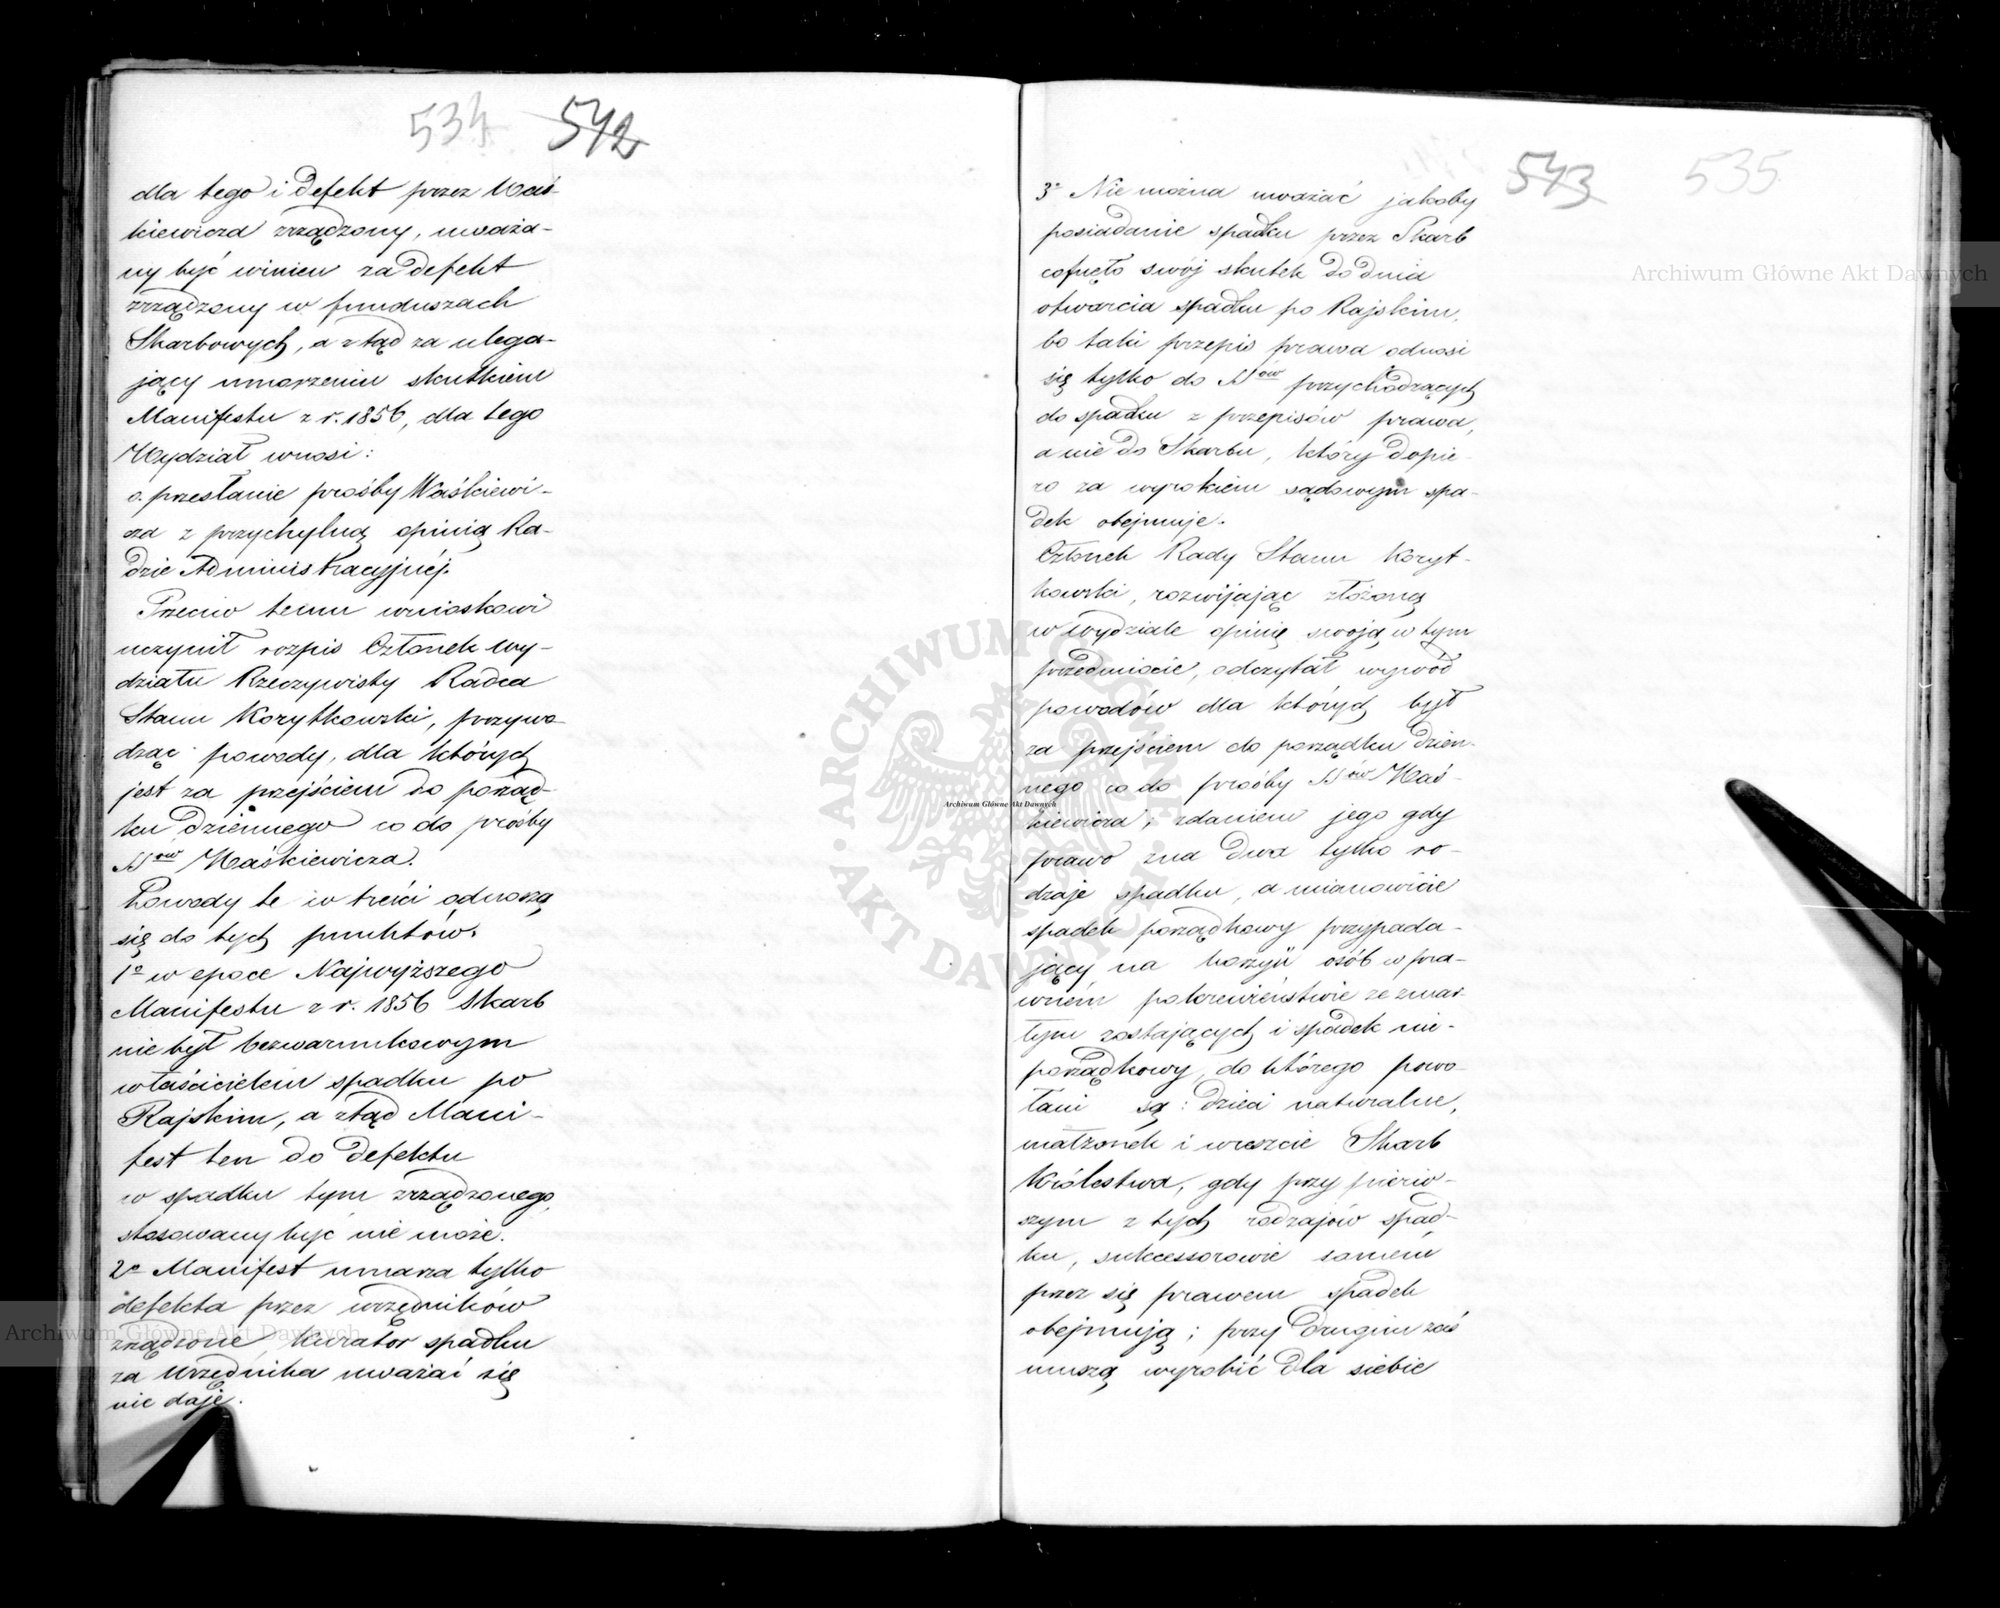 534 542
dla tego i defekt przez Waś-
kiewicza zrządzony, uważa-
ny być winien za defekt
zrządzony w funduszach
Skarbowych, a ztąd za ulega-
jący umorzeniu skutkiem
Manifestu z r. 1856, dla tego
Wydział wnosi:
o przesłanie prośby Waśkiewi-
cza z przychylną opinią Ra-
dzie Administracyjnéj.
Przeciw temu wnioskowi
uczynił rozpis Członek Wy-
działu Rzeczywisty Radca
Stanu Korytkowski, przywo-
dząc powody, dla których
jest za przejściem do porząd-
ku dziennego co do prośby
Waśkiewicza.
Powody te w treści odnoszą
się do tych punktów.
1o w epoce Najwyższego
Manifestu z r. 1856 Skarb
nie był bezwarunkowym
właścicielem spadku po
Rajskim, a ztąd Mani-
fest ten do defektu
w spadku tym zrządzonego,
stosowany być nie może.
2o Manifest umarza tylko
defekta przez urzędników
zrządzone Kurator spadku
za Urzędnika uważać się
nie daje.
543 535
3o Nie można uważać jakoby
posiadanie spadku przez Skarb
cofnęło swój skutek do dnia
otwarcia spadku po Rajskim,
bo taki przepis prawa odnosi
się tylko do przychodzących
do spadku z przepisów prawa,
a nie do Skarbu, który dopie-
ro za wyrokiem sądowym spa-
dek obejmuje.
Członek Rady Stanu Koryt-
kowski, rozwijając złożoną
w Wydziale opinię swoją w tym
przedmiocie, odczytał wywód
powodów dla których był
za przejściem do porządku dzien-
nego co do prośby Waś-
kiewicza; zdaniem jego gdy
prawo zna dwa tylko ro-
dzaje spadku, a mianowicie
spadek porządkowy przypada-
jący na korzyść osób w pra-
wném pokrewieństwie ze zmar-
łym zostających i spadek nie-
porządkowy, do którego powo-
łani są: dzieci naturalne,
małżonek i wreszcie Skarb
Królestwa, gdy przy pierw-
szym z tych rodzajów spad-
ku, sukcessorowie samem
przez się prawem spadek
obejmują; przy drugim zaś
muszą wyrobić dla siebie
Archiwum Główne Akt Dawnych
Archiwum Główne Akt Dawnych
Archiwum Główne Akt Dawnych
ARCHIWUM GŁÓWNE AKT DAWNYCH